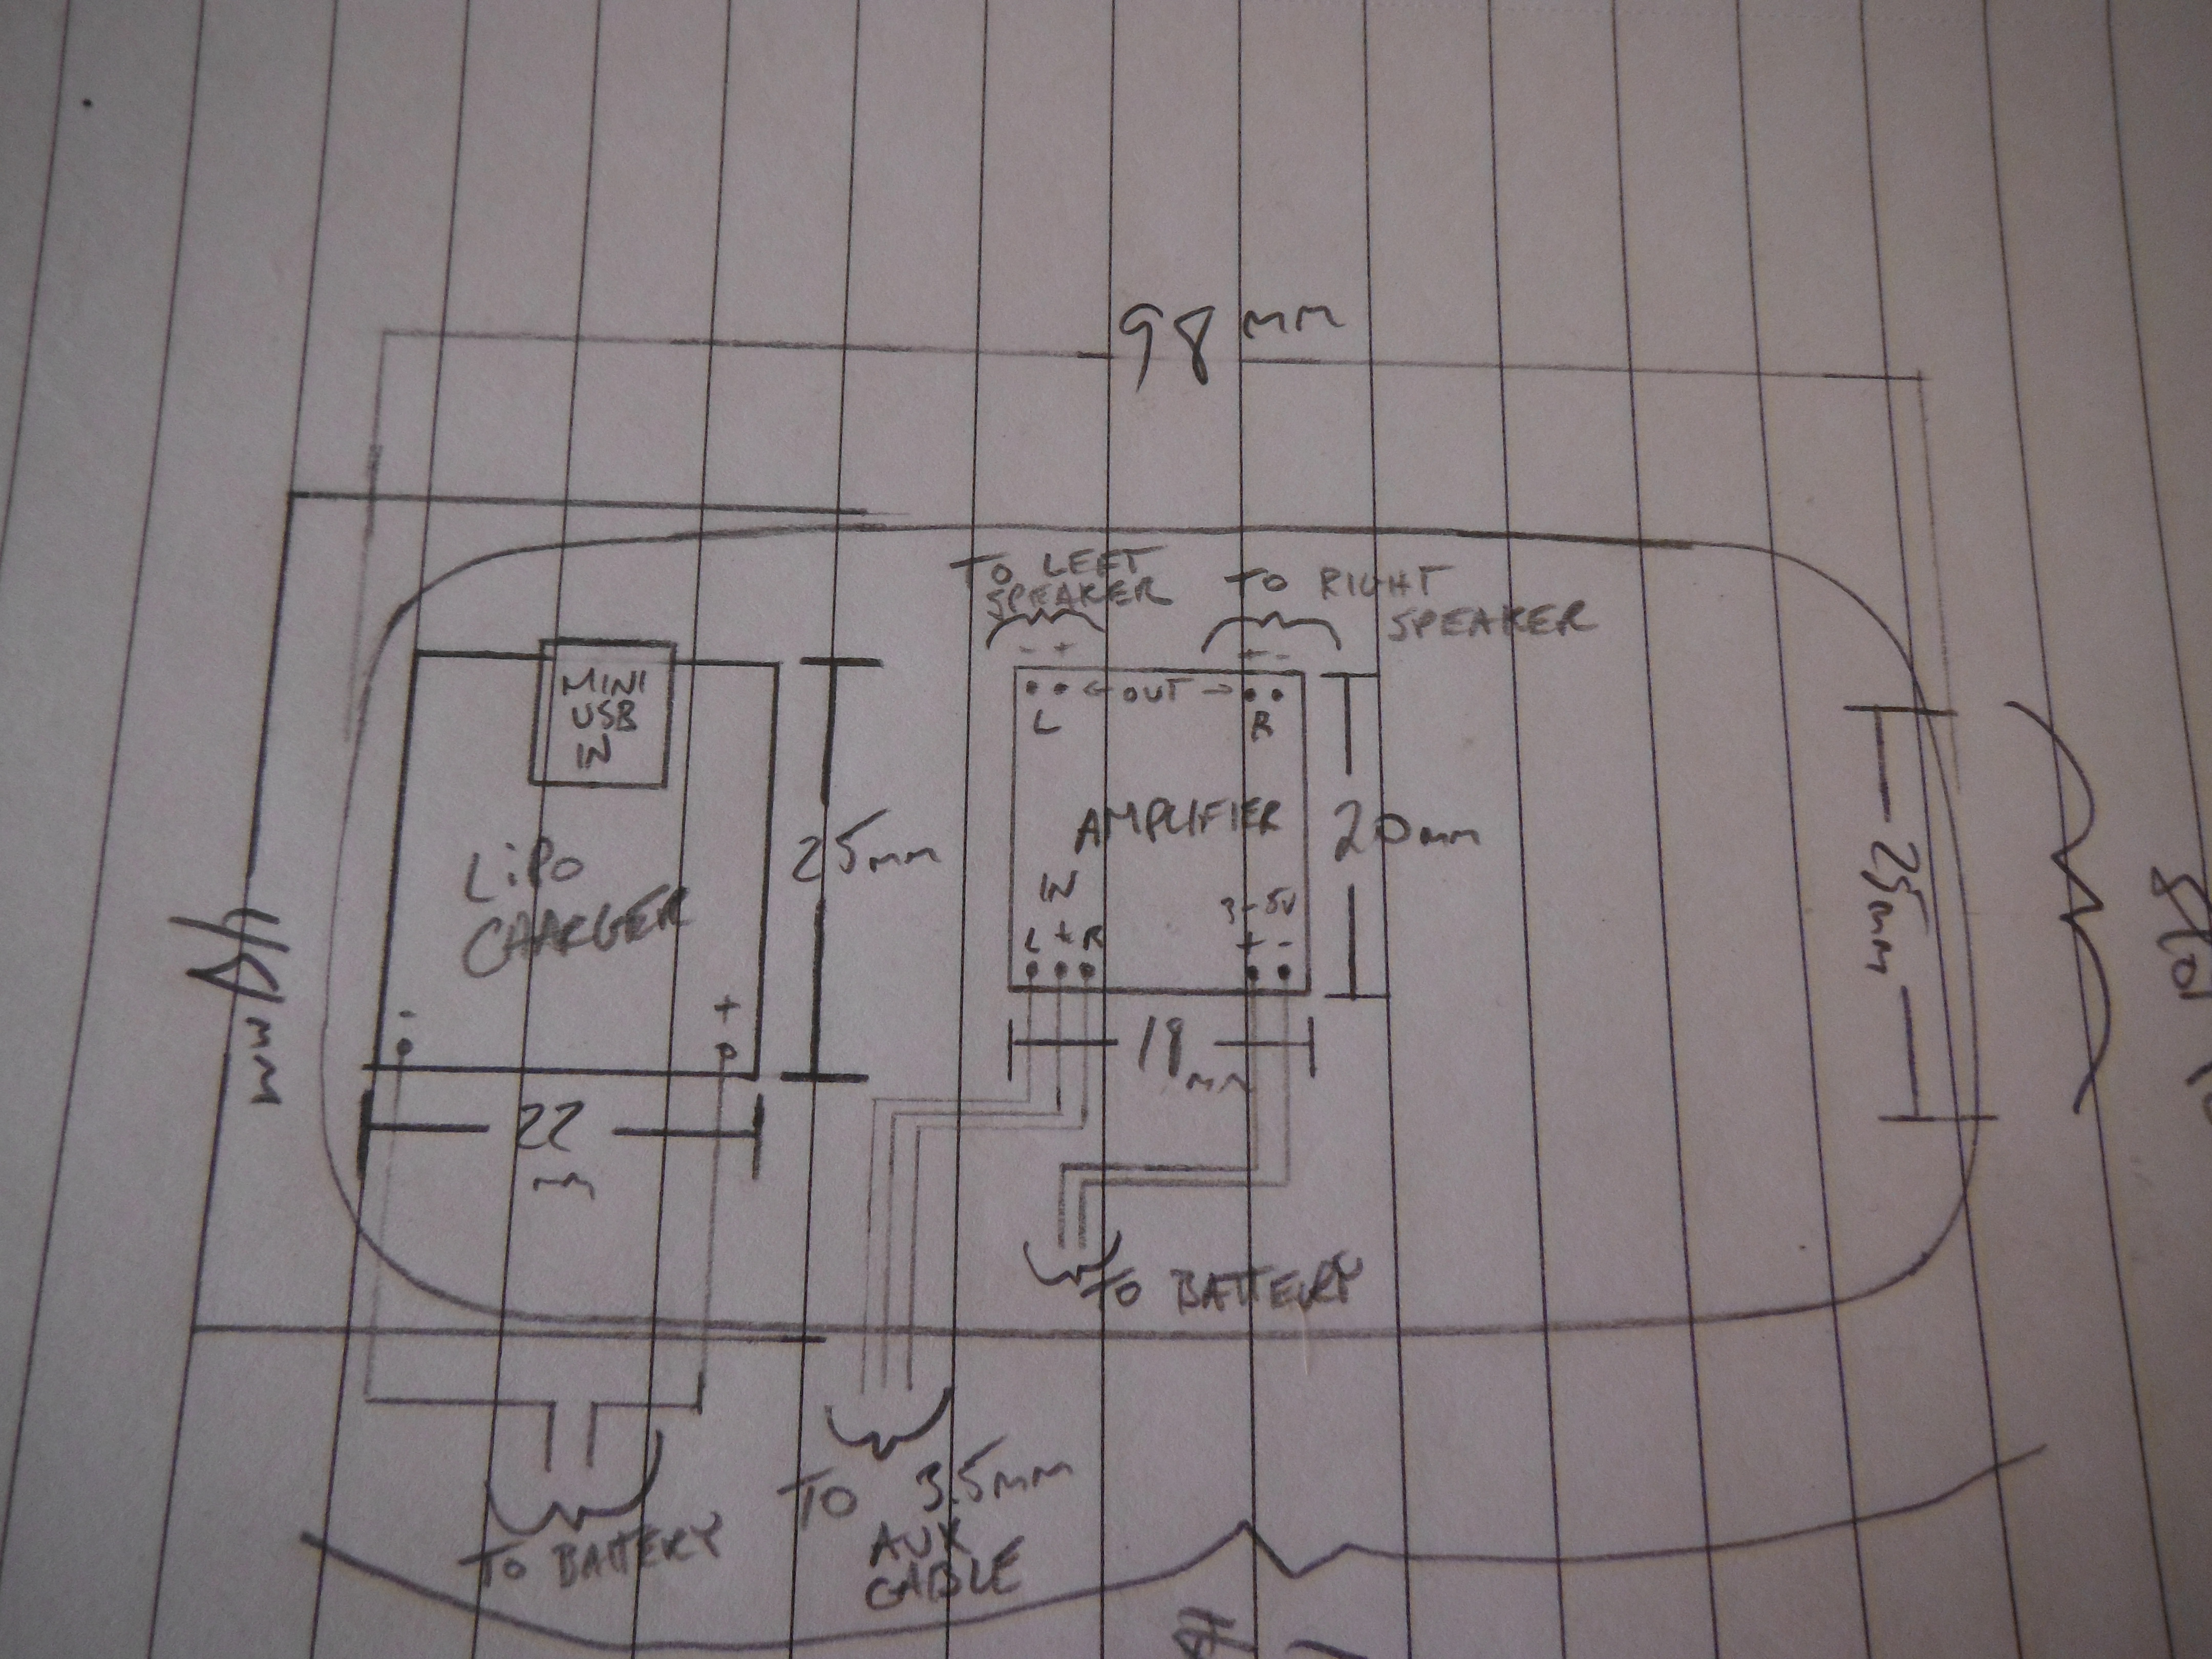 98 mm
TO LEFT
SPEAKER
TO RIGHT
SPEAKER
- +
+ -
MINI
USB
IN
← OUT →
L
R
25mm
AMPLIFIER
20mm
LiPo
CHARGER
IN
3-5V
L + R
+ -
25mm
mm
- +
18mm
22
mm
TO BATTERY
TO 3.5mm
AUX
CABLE
TO BATTERY